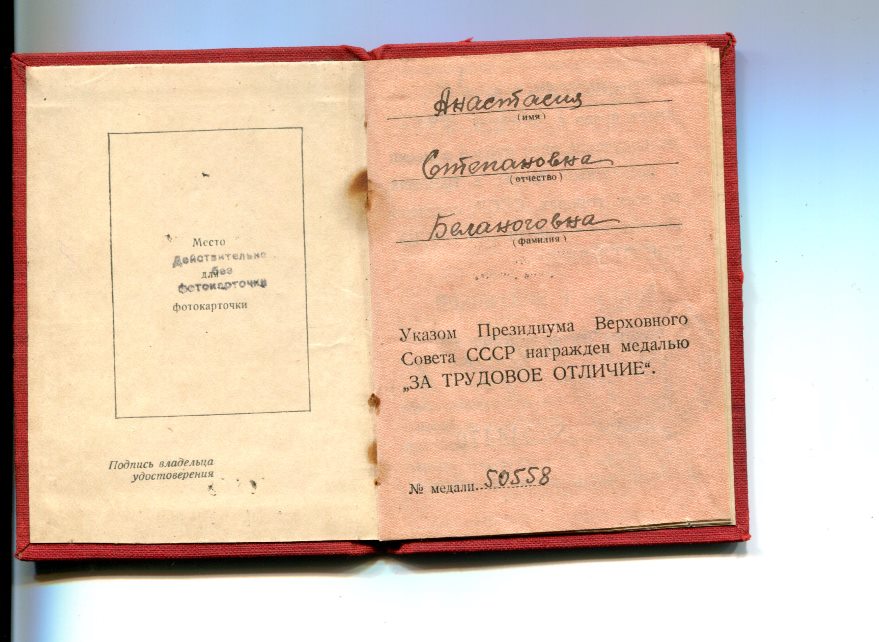 Место
Действительно
для
без
фотокарточки
фотокарточки
Подпись владельца
удостоверения
Анастасия
(имя)
Степановна
(отчество)
Беланоговна
(фамилия)
Указом Президиума Верховного
Совета СССР награжден медалью
„ЗА ТРУДОВОЕ ОТЛИЧИЕ“.
№ медали 50558